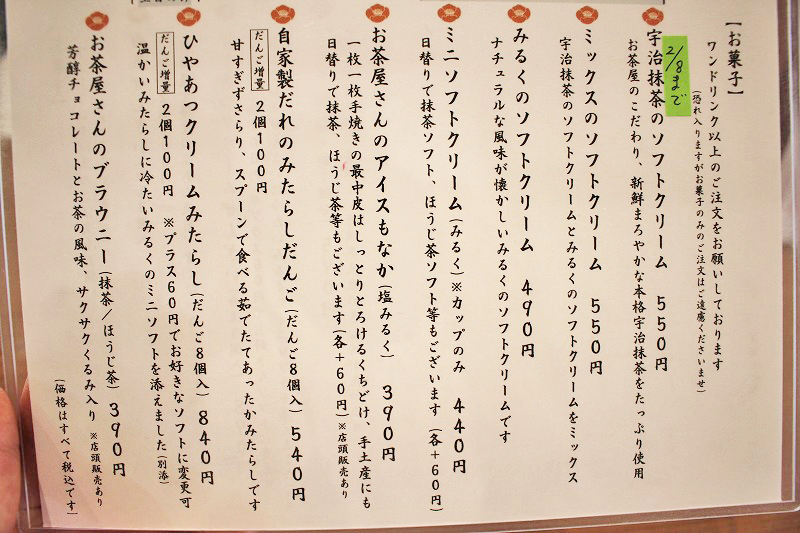 【お菓子】
ワンドリンク以上のご注文をお願いしております
(恐れ入りますがお菓子のみのご注文はご遠慮くださいませ)
2/8まで
宇治抹茶のソフトクリーム 550円
お茶屋のこだわり、新鮮まろやかな本格宇治抹茶をたっぷり使用
ミックスのソフトクリーム 550円
宇治抹茶のソフトクリームとみるくのソフトクリームをミックス
みるくのソフトクリーム 490円
ナチュラルな風味が懐かしいみるくのソフトクリームです
ミニソフトクリーム(みるく)※カップのみ 440円
日替りで抹茶ソフト、ほうじ茶ソフト等もございます(各+60円)
お茶屋さんのアイスもなか(塩みるく) 390円
一枚一枚手焼きの最中皮はしっとりとろけるくちどけ、手土産にも
日替りで抹茶、ほうじ茶等もございます(各+60円)※店頭販売あり
自家製だれのみたらしだんご(だんご8個入) 540円
だんご増量 2個100円
甘すぎずさらり、スプーンで食べる茹でたてあったかみたらしです
ひやあつクリームみたらし(だんご8個入) 840円
だんご増量 2個100円 ※プラス60円でお好きなソフトに変更可
温かいみたらしに冷たいみるくのミニソフトを添えました(別添)
お茶屋さんのブラウニー(抹茶/ほうじ茶) 390円
芳醇チョコレートとお茶の風味、サクサクくるみ入り ※店頭販売あり
(価格はすべて税込です)